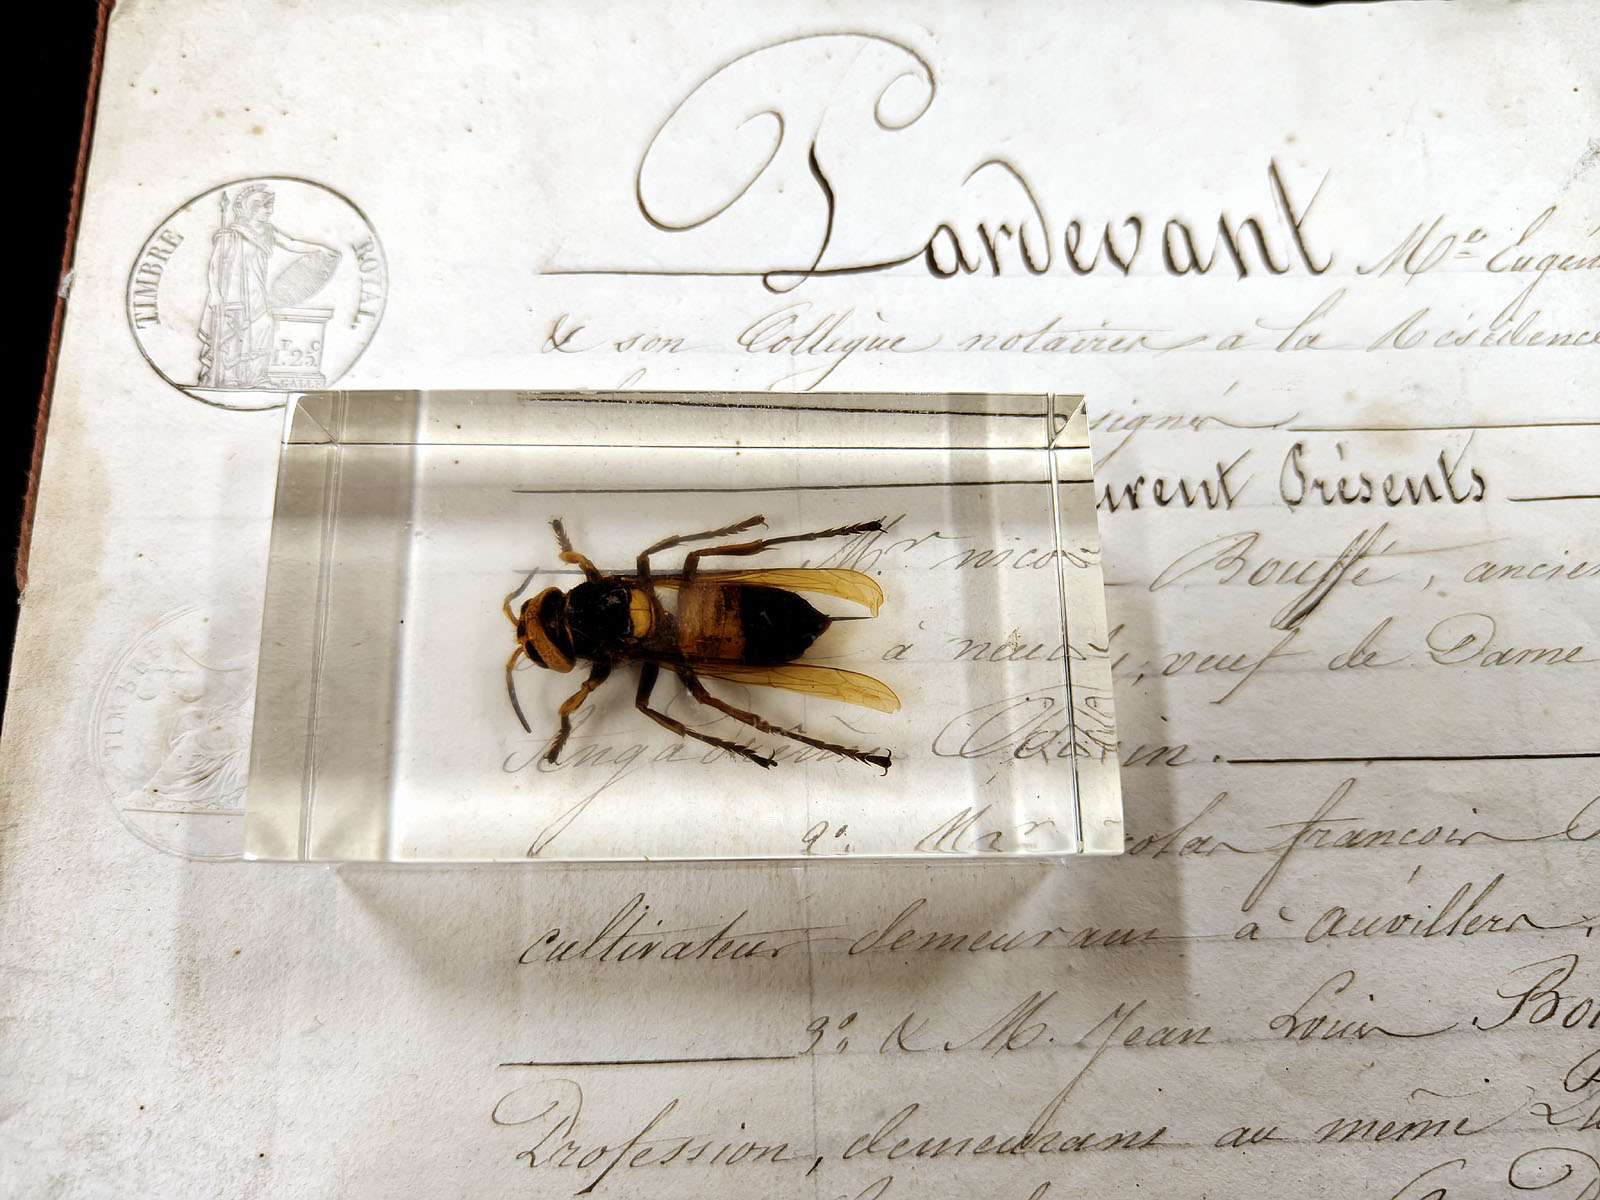 TIMBRE ROYAL
F C
1.25
GALLE
Pardevant Me Eugèn
& son Collègue notaires à la Résidence
signés
urent Présents
Mr nico Bouffé, ancien
à neu veuf de Dame
in.
TIMBRE
2º. Mr colas françois
cultivateur demeurant à auvillers,
3º. & M. Jean Louis Bou
Profession, demeurant au même